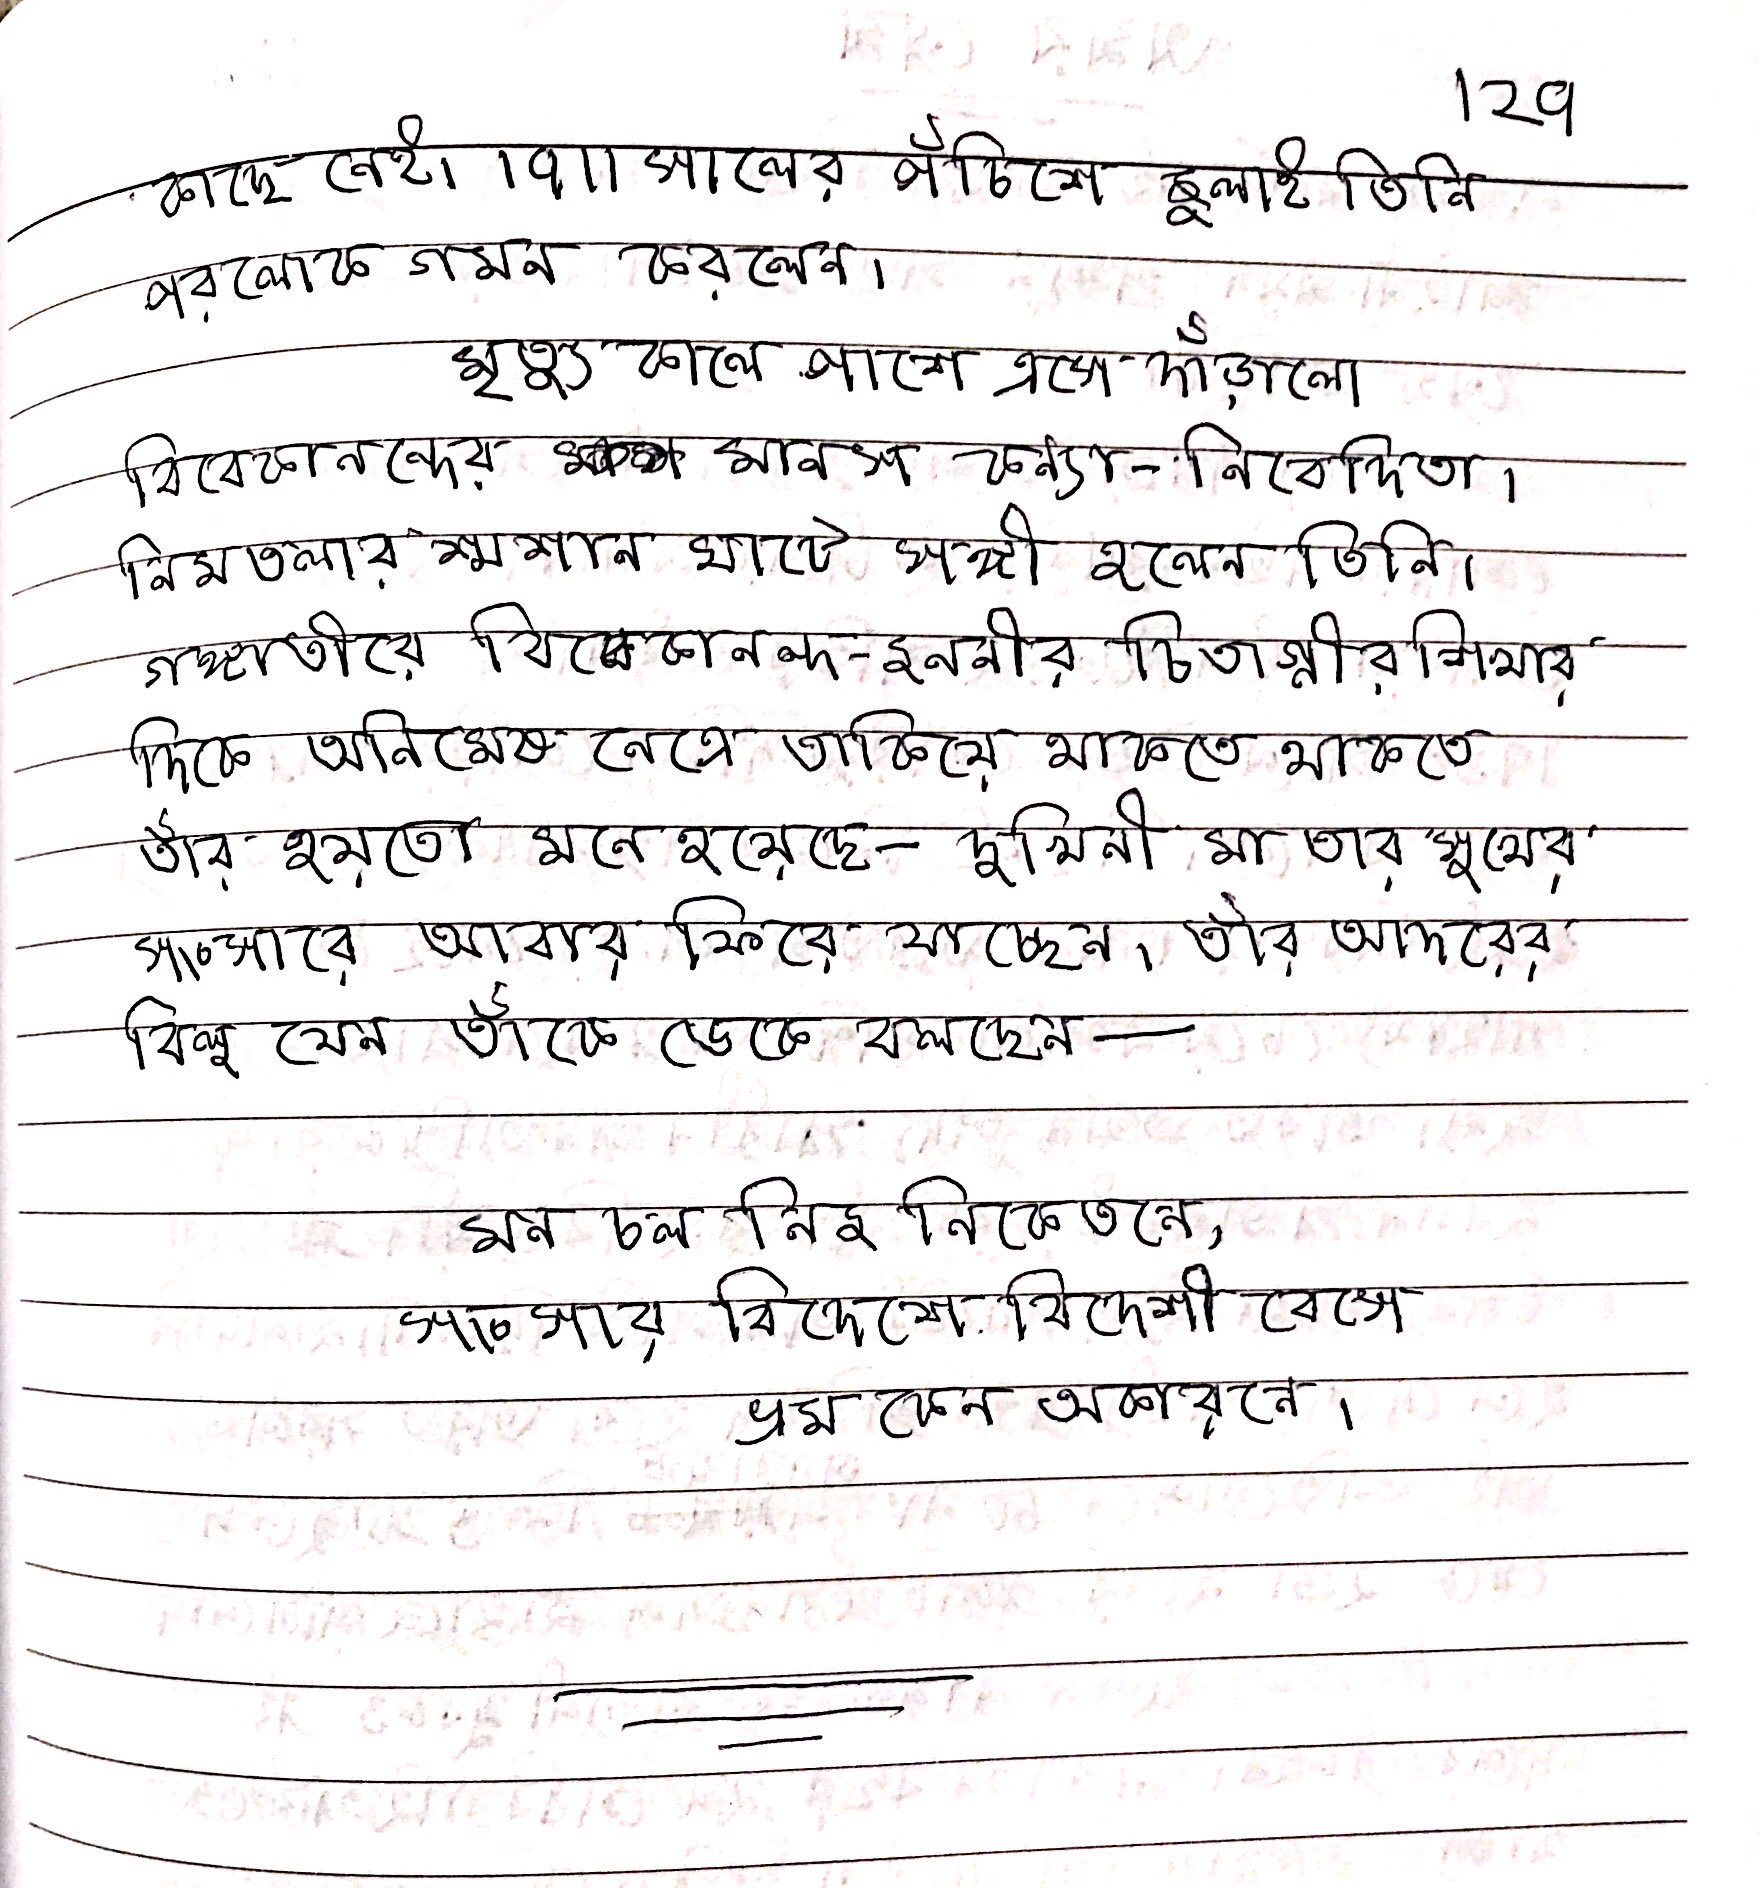 129
কাছে নেই। 1911 সালের পঁচিশে জুলাই তিনি
পরলোক গমন করলেন।
মৃত্যু কালে পাশে এসে দাঁড়ালো
বিবেকানন্দের মানস কন্যা - নিবেদিতা।
নিমতলার শ্মশান ঘাটে সঙ্গী হলেন তিনি।
গঙ্গাতীরে বিবেকানন্দ-জননীর চিতাগ্নীর শিখার
দিকে অনিমেষ নেত্রে তাকিয়ে থাকতে থাকতে
তাঁর হয়তো মনে হয়েছে - দুখিনী মা তার সুখের
সংসারে আবার ফিরে যাচ্ছেন। তাঁর আদরের
বিলু যেন তাঁকে ডেকে বলছেন —
মন চল নিজ নিকেতনে,
সংসার বিদেশে বিদেশী বেসে
ভ্রম কেন অকারনে।